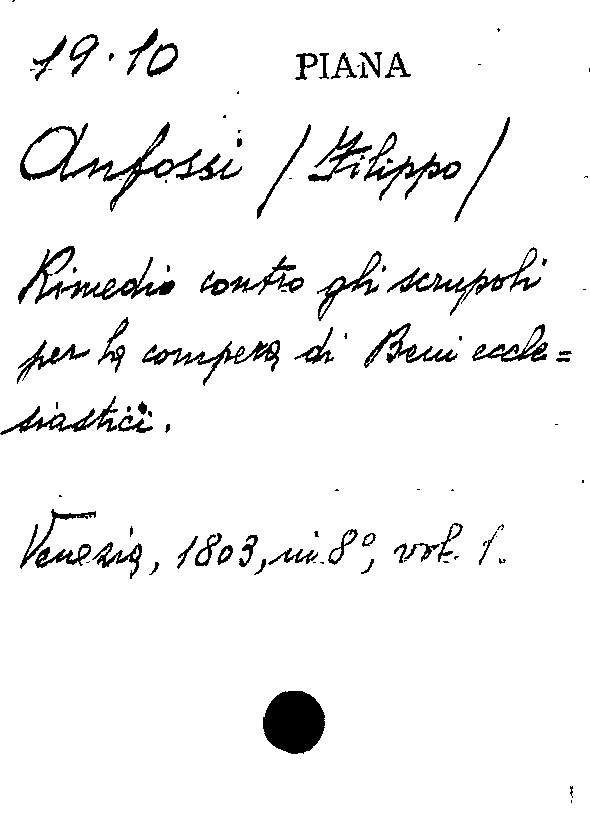 19.10 PIANA
Anfossi (Filippo)
Rimedio contro gli scrupoli
per la compera di Beni eccle=
siastici.
Venezia, 1803, in 8º, vol. 1.